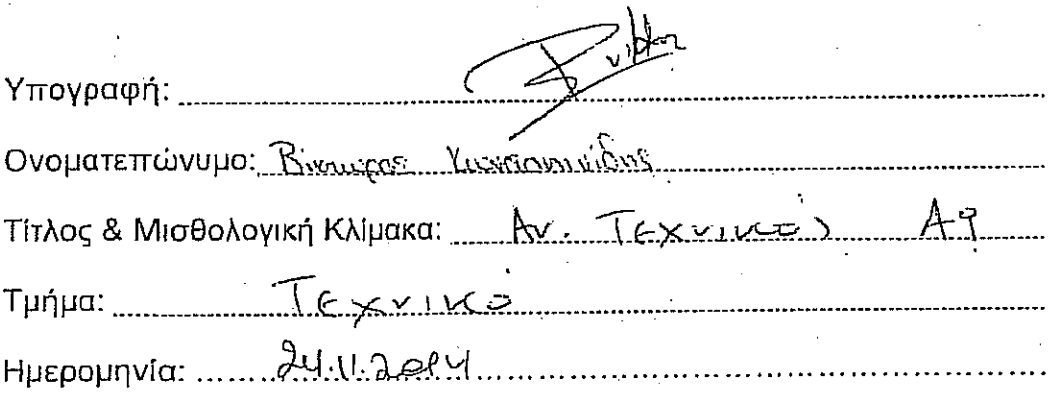 Υπογραφή:
Ονοματεπώνυμο: Βίκτωρας Κωνσταντινίδης
Τίτλος & Μισθολογική Κλίμακα: Αν. Τεχνικός Α9
Τμήμα: Τεχνικό
Ημερομηνία: 24.11.2014